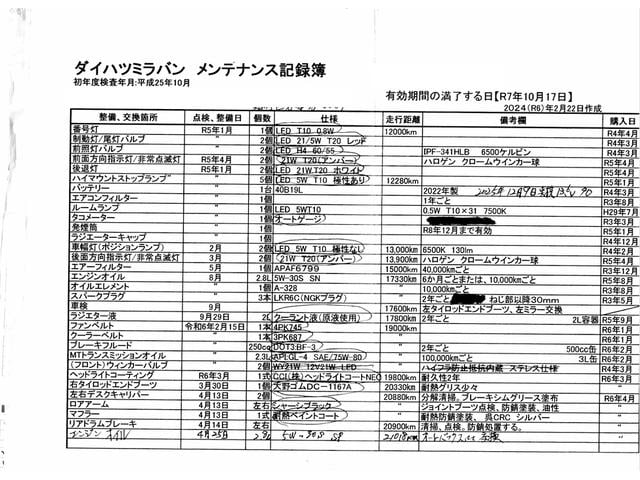 ダイハツミラバン メンテナンス記録簿
初年度検査年月:平成25年10月
有効期間の満了する日【R7年10月17日】
2024(R6)年2月22日作成
整備、交換箇所 点検、整備日 個数 仕様 走行距離 備考欄 購入日
番号灯 R5年1月 1個 LED T10 0.8W 12000km R4年4月
制動灯/尾灯バルブ 2個 LED 21/5W T20 レッド R4年3月
前照灯バルブ 2個 LED H4 60/55 IPF-341HLB 6500ケルビン R4年3月
前面方向指示灯/非常点滅灯 R5年4月 2個 21W T20(アンバー) ハロゲン クロームウインカー球 R5年4月
後退灯 R5年1月 2個 LED 21W,T20 ホワイト R5年1月
ハイマウントストップランプ 5個 LED 5W T10 極性あり 12280km R4年1月
バッテリー 1台 40B19L 2022年製 R4年3月
エアコンフィルター 1個 1年ごと R3年8月
ルームランプ 1個 LED 5WT10 0.5W T10×31 7500K H29年7月
タコメーター 1個 オートゲージ R3年3月
発煙筒 1個 R8年12月まで有効 R5年1月
ラジエターキャップ 1個 R4年12月
車幅灯(ポジションランプ) 2月 2個 LED 5W T10 極性なし 13,000km 6500K 130lm R4年2月
後面方向指示灯/非常点滅灯 3月 2個 21W T20(アンバー) 13,900km ハロゲン クロームウインカー球 R5年4月
エアーフィルター 5月 1個 APAF6799 15000km 40,000kmごと R3年3月
エンジンオイル 8月 2.8L 5W-30S SN 17330km 6か月ごとまたは、10,000kmごと
オイルエレメント 1個 A-328 10,000kmごと R3年3月
スパークプラグ 3本 LKR6C(NGKプラグ) 2年ごと ねじ部以降30mm R3年5月
車検 9月 17600km 左タイロッドエンドブーツ、左ミラー交換
ラジエター液 9月29日 2L クーラント液(原液使用) 17800km 2年ごと 2L容器 R5年9月
ファンベルト 令和6年2月15日 1本 4PK745 19000km R6年2月
クーラーベルト 1本 3PK687 R6年1月
ブレーキフルード 250cc DOT3:BF-3 2年ごと 500cc缶 R6年2月
MTトランスミッションオイル 2.3L APLGL-4 SAE/75W-80 100,000kmごと 3L缶 R6年2月
(フロント)ウィンカーバルブ 2個 WY21W 12V21W LED ハイフラ防止抵抗内蔵 ステレス仕様 R4年3月
ヘッドライトコーティング R6年3月 1式 CCI(株)ヘッドライトコートNEO 19800km 耐久性2年 R6年2月
右タイロッドエンドブーツ 3月30日 1個 大野ゴムDC-1167A 20330km 耐熱グリス少々 R6年3月
左右デスクキャリバー 4月13日 2個 20880km 分解清掃。ブレーキシムグリース塗布 R6年4月
ロアアーム 4月13日 左右 シャーシブラック ジョイントブーツ点検、防錆塗装、油性
マフラー 4月13日 1式 耐熱ペイントコート 耐熱防錆塗装、 呉CRC シルバー
リアドラムブレーキ 4月14日 左右 20900km 清掃、点検。防錆処理する。
エンジンオイル 4月25日 5W-30S SP 21018km